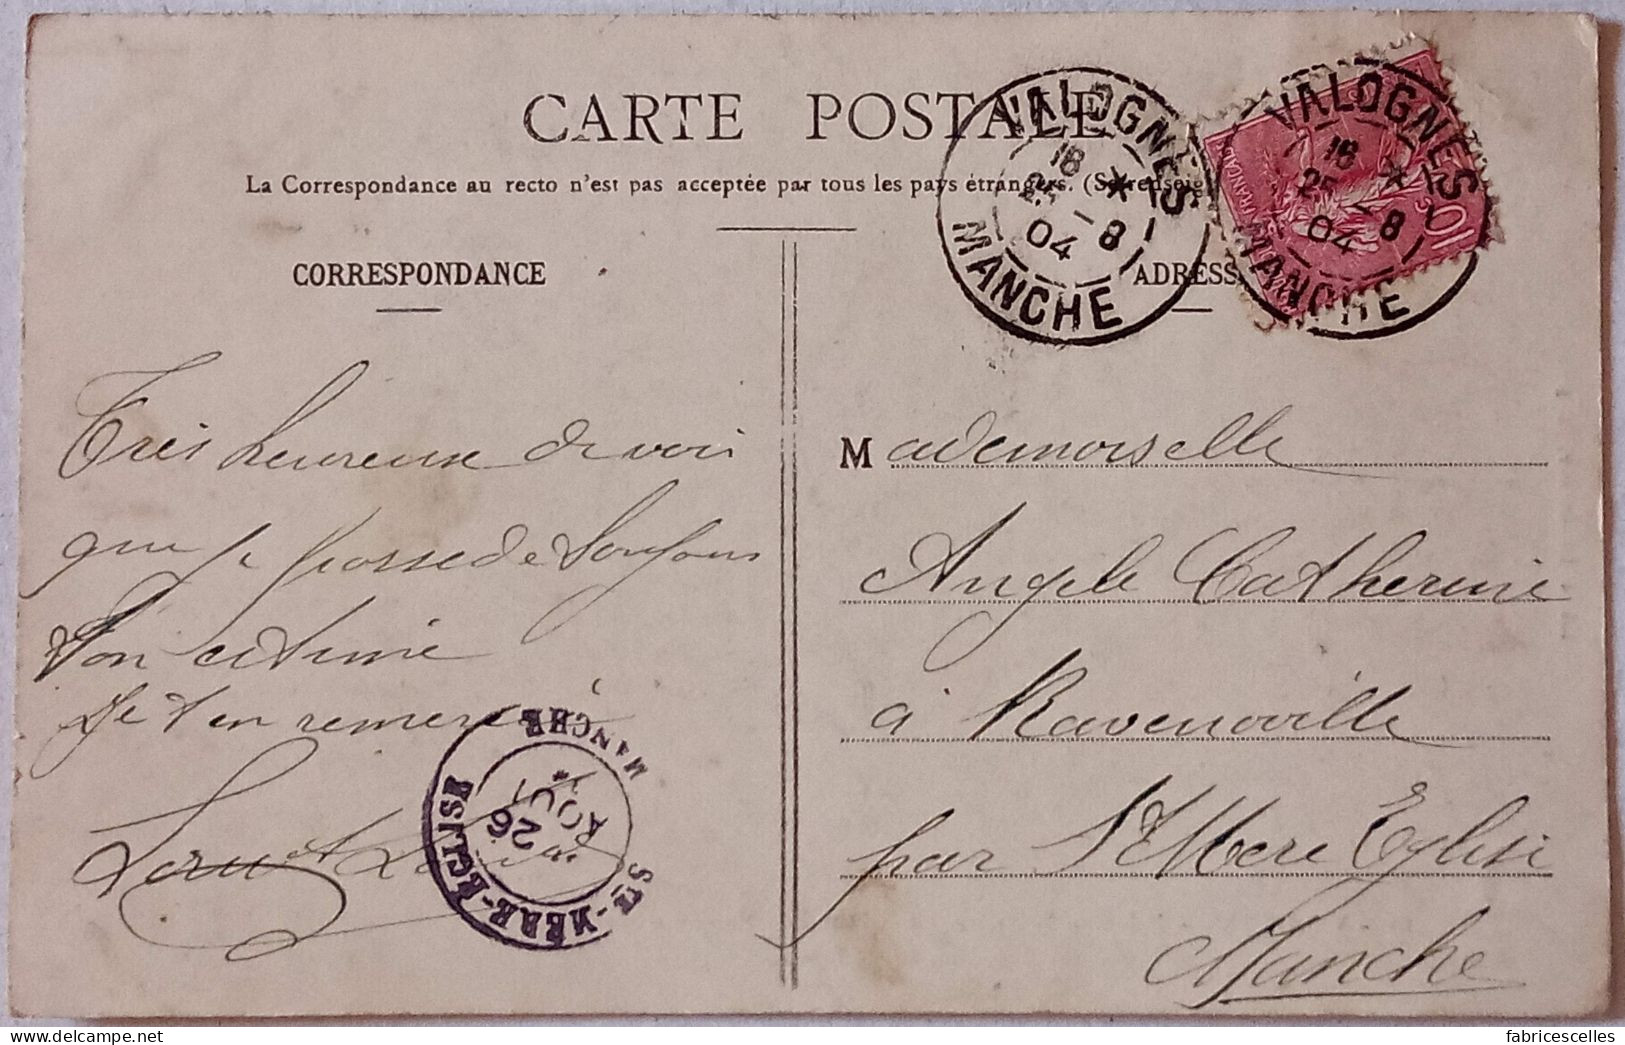 CARTE POSTALE
La Correspondance au recto n'est pas acceptée par tous les pays étrangers. (Se renseig
CORRESPONDANCE
ADRESS
VALOGNES
MANCHE
18 *
25 - 8
04
VALOGNES
MANCHE
18 *
25 - 8
04
10
Très heureuse de voir
que je possede toujours
ton estime
Je t'en remerci
Mademoiselle
Angele Catherine
à Ravenoville
par Ste Mere Eglise
Manche
STE-MÈRE-EGLISE
MANCHE
26
AOU
fabricescelles